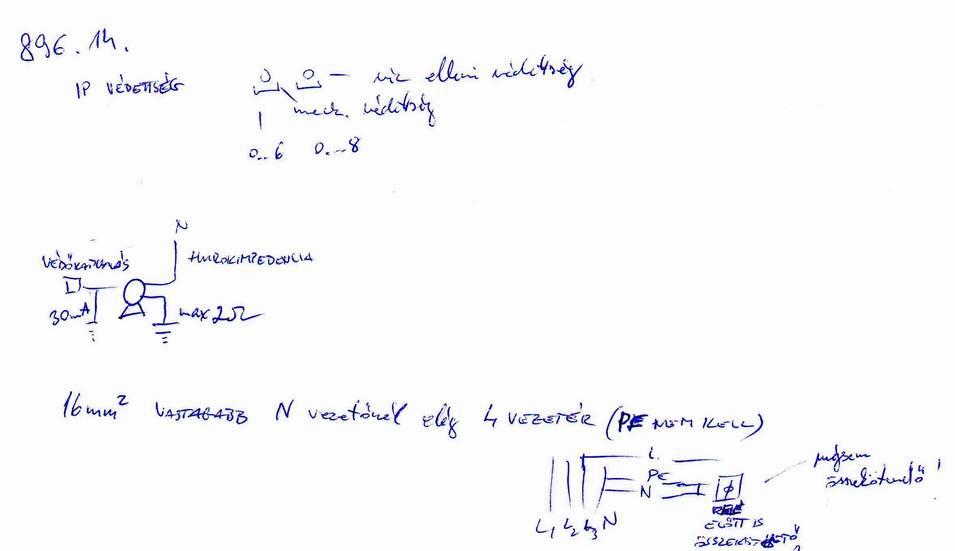 896.14.
IP VÉDETTSÉG 0 0 — víz elleni védettség
mech. védettség
0..6 0...8
N
VÉDŐKAPCSOLÁS HUROKIMPEDENCIA
30mA max 2Ω
16mm² VASTAGABB N vezetőnél elég 4 VEZETÉR (PE NEM KELL)
L.
PE
N
mégsem
összekötendő!
L₁ L₂ L₃ N
ELŐTT IS